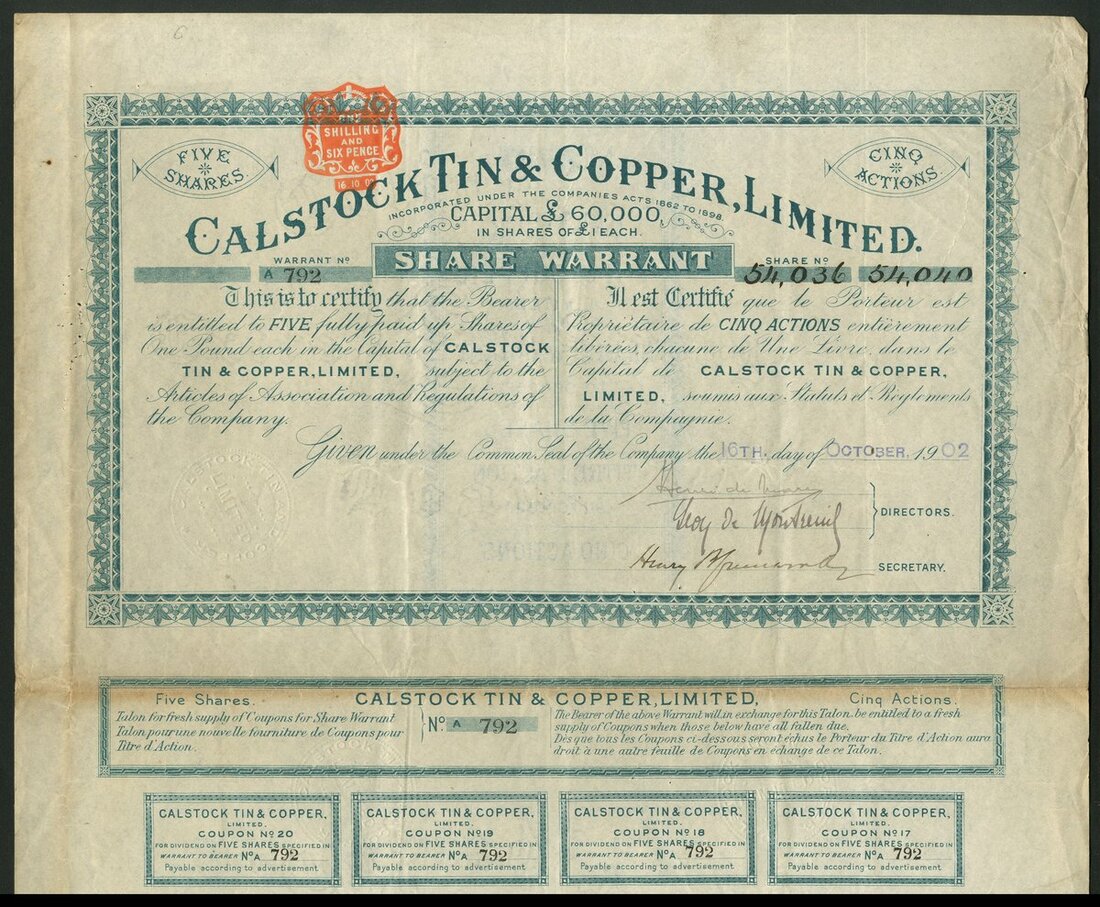 6
FIVE
SHARES
ONE
SHILLING
AND
SIX PENCE
16.10.02
CINQ
ACTIONS.
CALSTOCK TIN & COPPER, LIMITED.
INCORPORATED UNDER THE COMPANIES ACTS 1862 TO 1898.
CAPITAL £ 60,000,
IN SHARES OF £1 EACH.
WARRANT No
A 792
SHARE WARRANT
SHARE No
54,036 54,040
This is to certify that the Bearer
is entitled to FIVE fully paid up Shares of
One Pound each in the Capital of CALSTOCK
TIN & COPPER, LIMITED, subject to the
Articles of Association and Regulations of
the Company.
Il est Certifié que le Porteur est
Propriétaire de CINQ ACTIONS entièrement
libérées, chacune de Une Livre, dans le
Capital de CALSTOCK TIN & COPPER,
LIMITED, soumis aux Statuts et Règlements
de la Compagnie.
Given under the Common Seal of the Company the 16TH. day of OCTOBER, 1902
Henri de
de Montreuil
DIRECTORS.
Henry
SECRETARY.
Five Shares.
CALSTOCK TIN & COPPER, LIMITED,
Cinq Actions.
Talon for fresh supply of Coupons for Share Warrant
Talon pour une nouvelle fourniture de Coupons pour
Titre d'Action.
No. A 792
The Bearer of the above Warrant will, in exchange for this Talon, be entitled to a fresh
supply of Coupons when those below have all fallen due.
Dès que tous les Coupons ci-dessous seront échus le Porteur du Titre d'Action aura
droit à une autre feuille de Coupons en échange de ce Talon.
CALSTOCK TIN & COPPER,
LIMITED.
COUPON No 20
FOR DIVIDEND ON FIVE SHARES SPECIFIED IN
WARRANT TO BEARER No A 792
Payable according to advertisement
CALSTOCK TIN & COPPER,
LIMITED.
COUPON No 19
FOR DIVIDEND ON FIVE SHARES SPECIFIED IN
WARRANT TO BEARER No A 792
Payable according to advertisement
CALSTOCK TIN & COPPER,
LIMITED.
COUPON No 18
FOR DIVIDEND ON FIVE SHARES SPECIFIED IN
WARRANT TO BEARER No A 792
Payable according to advertisement
CALSTOCK TIN & COPPER,
LIMITED.
COUPON No 17
FOR DIVIDEND ON FIVE SHARES SPECIFIED IN
WARRANT TO BEARER No A 792
Payable according to advertisement